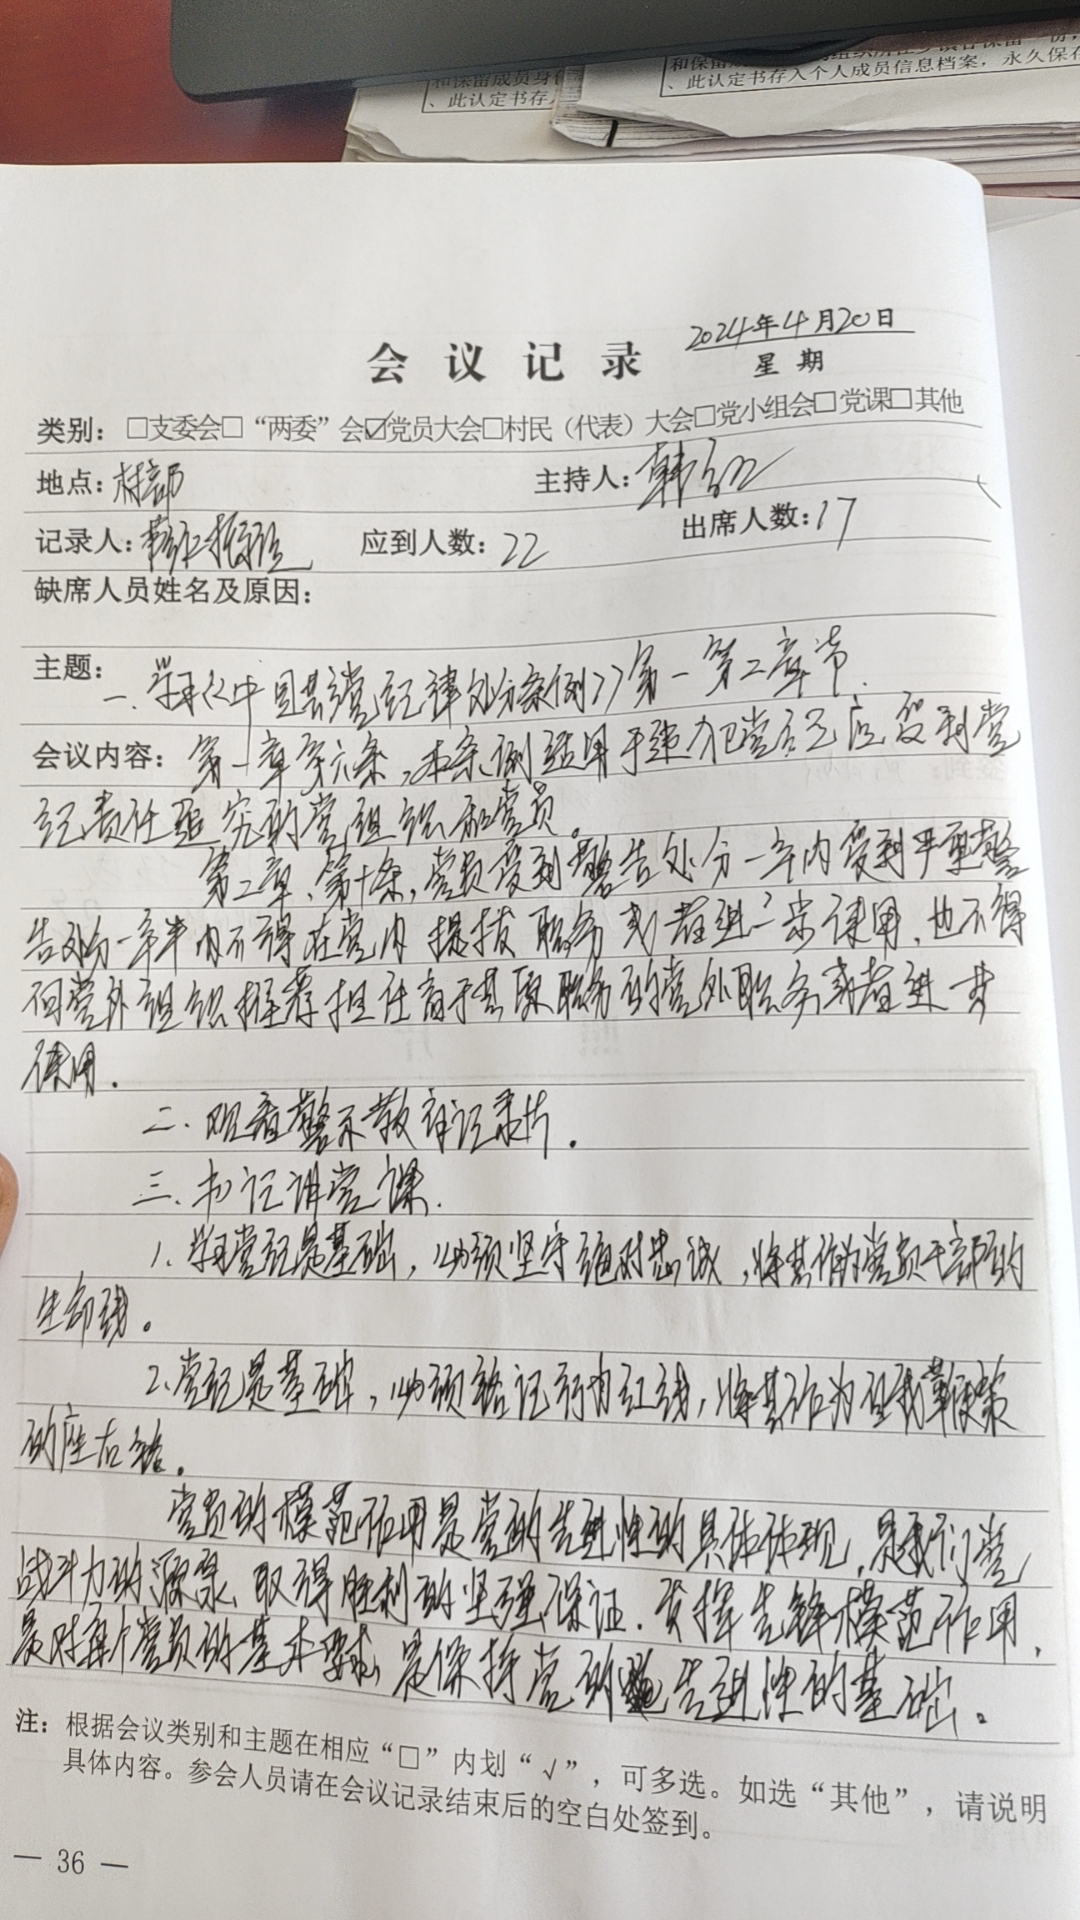 和保留成员身份
、此认定书存入
、此认定书存入个人成员信息档案，永久保存
2024年4月20日
会议记录
星期
类别：□支委会□“两委”会☑党员大会□村民（代表）大会□党小组会□党课□其他
地点：村部 主持人：韩
记录人： 应到人数：22 出席人数：17
缺席人员姓名及原因：
主题：
一、学习《中国共党纪律处分条例》第一第二章节.
会议内容：第一章第六条，本条例适用于违犯党纪应受到党
纪责任追究的党组织和党员。
第二章、第十条，党员受到警告处分一年内受到严重警
告处分一年半内不得在党内提拔职务或者进一步使用，也不得
向党外组织推荐担任高于其原职务的党外职务或者进一步
使用.
二.观看警示教育记录片.
三.书记讲党课.
1.学习党纪是基础，必须坚守绝对忠诚，将其作为党员干部的
生命线。
2.党纪是基础，必须铭记行为红线，将其作为自我鞭策
的座右铭.
党员的模范作用是党的先进性的具体体现，是我们党
战斗力的源泉、取得胜利的坚强保证.发挥先锋模范作用，
是对每个党员的基本要求，是保持党的先进性的基础。
注：根据会议类别和主题在相应“□”内划“√”，可多选。如选“其他”，请说明
具体内容。参会人员请在会议记录结束后的空白处签到。
— 36 —